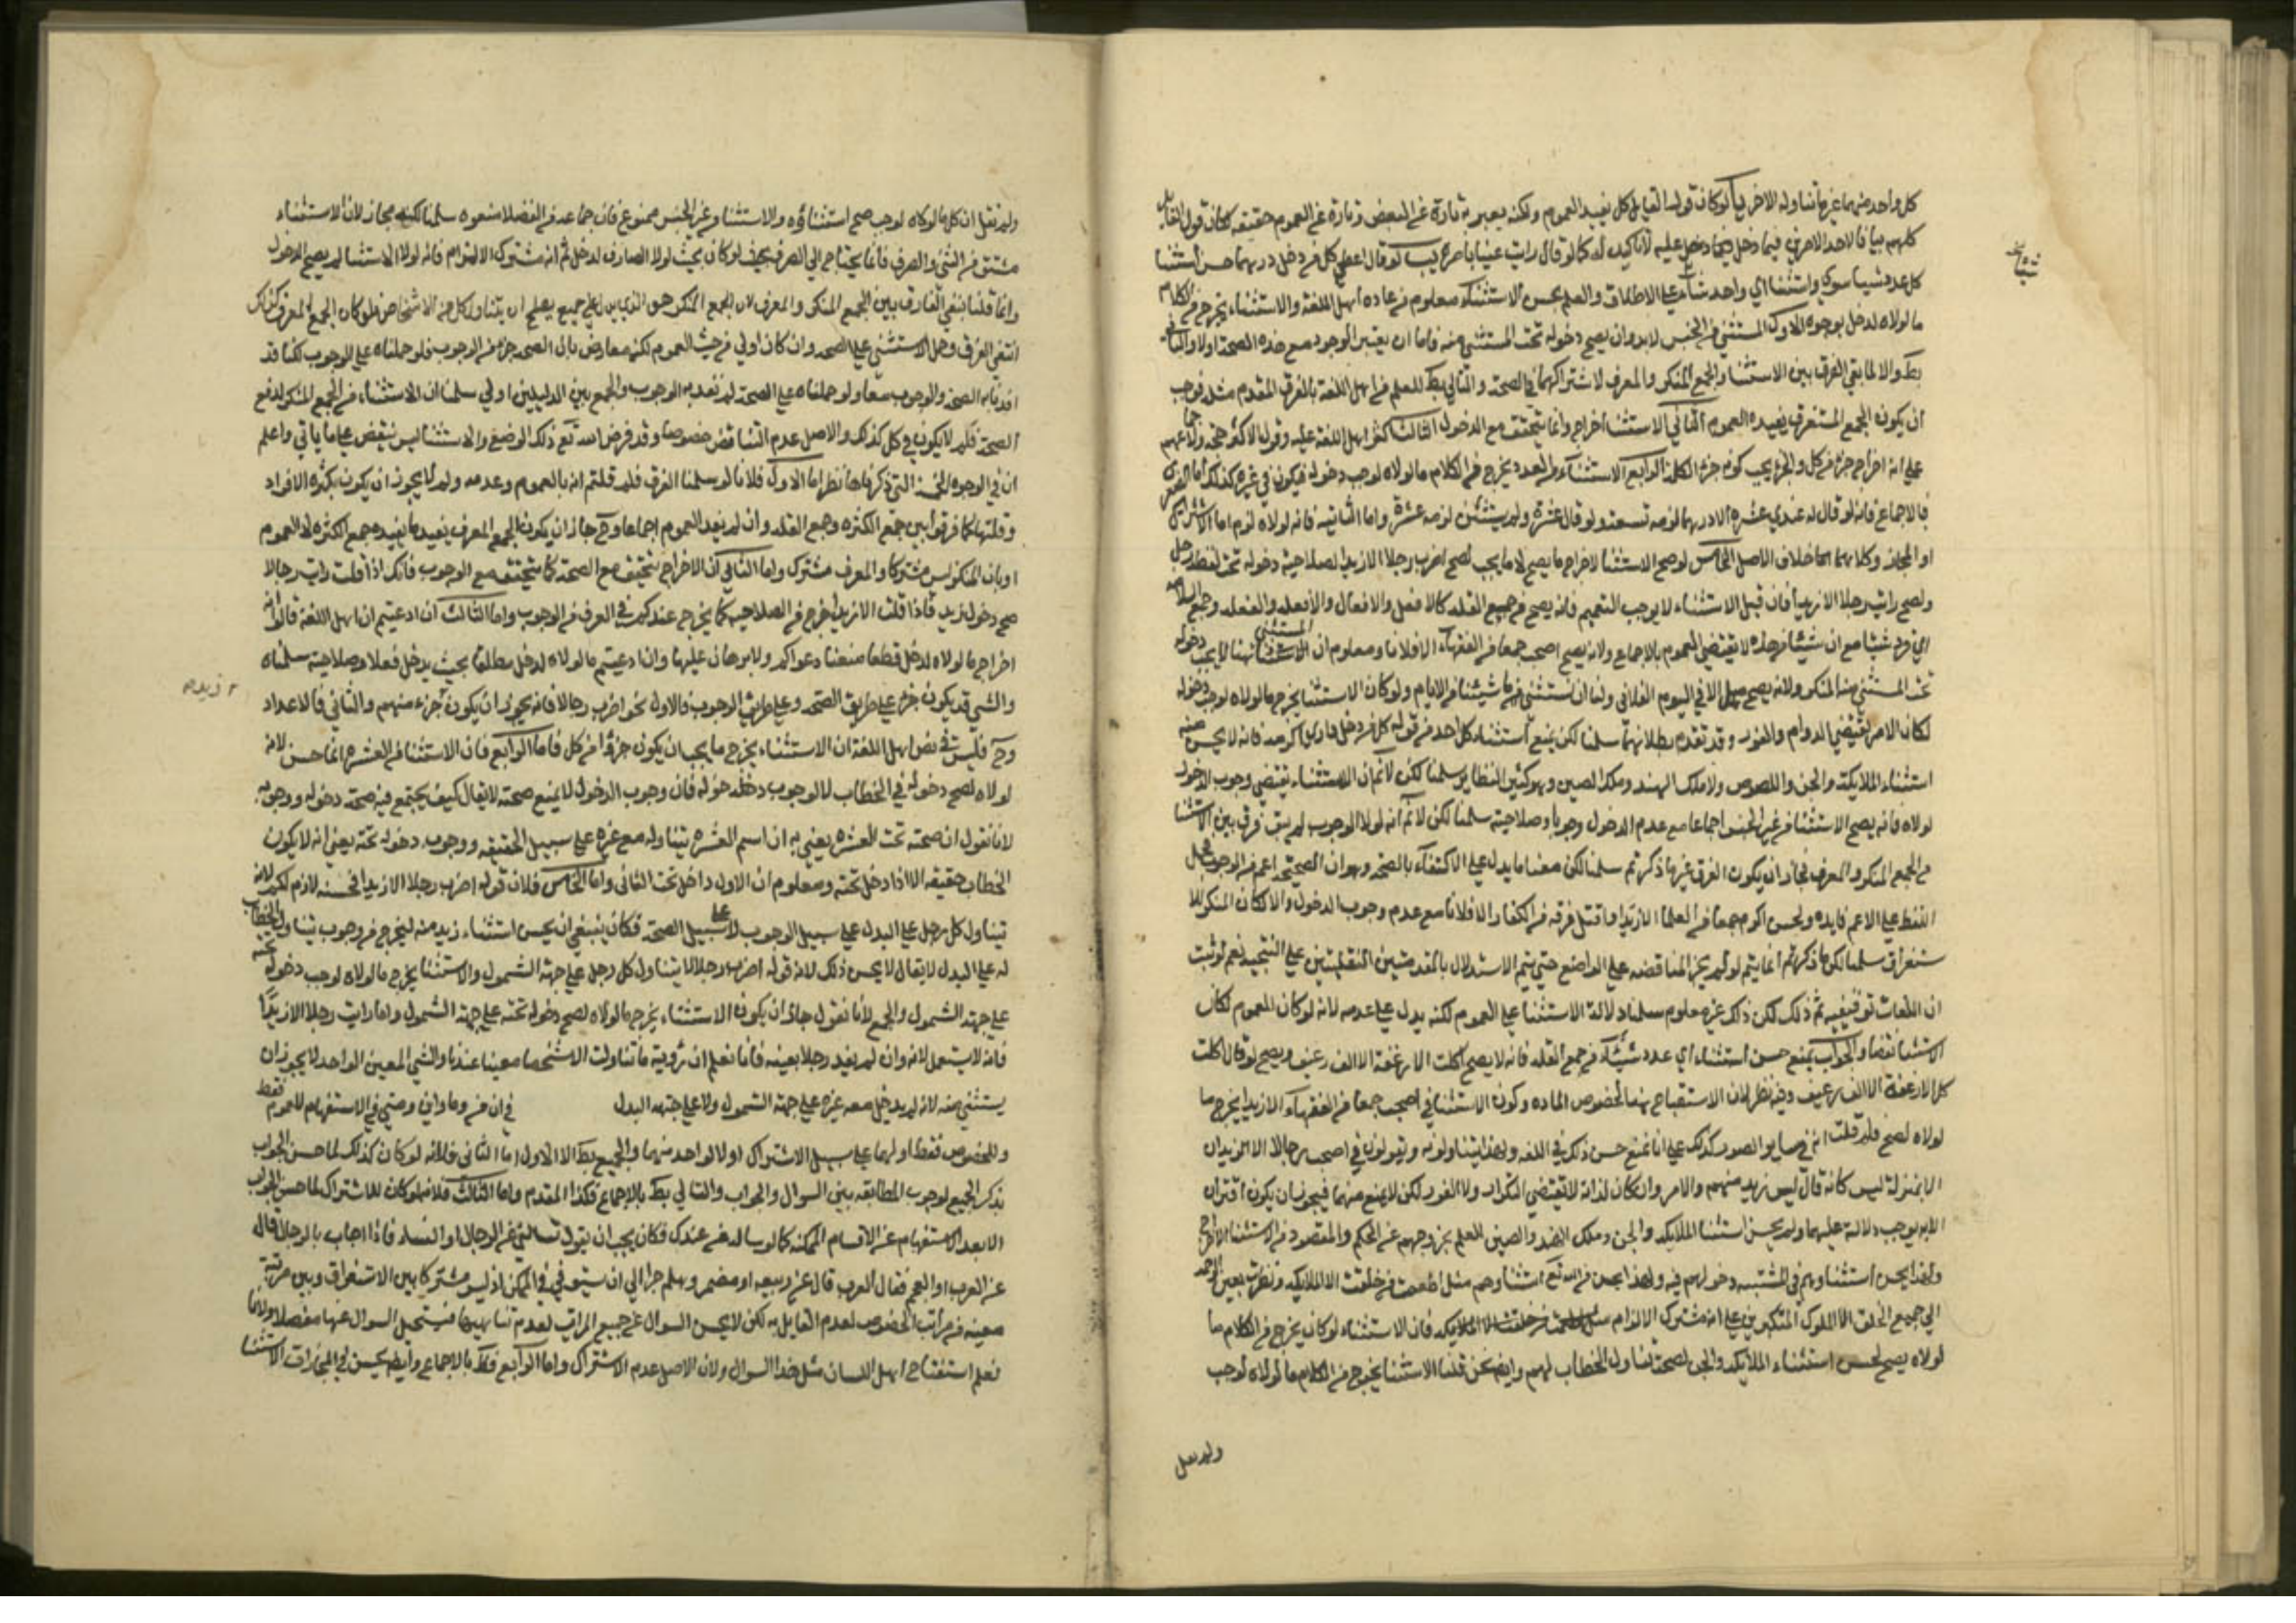 كل واحد منهما غير ما تناوله الاخر لو كان قول القايل كل يفيد العموم ولكنه يعبر به تارة عن البعض وتارة عن العموم حقيقه لكان قول القايل
كلهم بيانا لاحد الامرين فيما دخل عليه لا تاكيدا له كما لو قال رايت عينا باصرة لو قال اعط كل من دخل درهما حسن استثنا
كل عدد شيا سوى واستثنا اي واحد شاء على الاطلاق والعلم بحسن الاستثناء معلوم من عاده اهل اللغة والاستثناء يخرج من الكلام
ما لولاه لدخل بوجوه الاول المستثنى من الجنس لابد وان يصح دخوله تحت المستثنى منه فاما ان يعتبر الوجوب مع هذه الصحة اولا والثاني
بط والا لما بقي الفرق بين الاستثنا من الجمع المنكر والمعرف لاشتراكهما في الصحة والتالي بط للعلم من اهل اللغة بالفرق المقدم مثله فوجب
ان يكون الجمع المستغرق يفيده العموم الثاني الاستثنا اخراج وانما يتحقق مع الدخول الثالث اكثر اهل اللغة عليه وقول الاكثر حجة
على انه اخراج جزء من كل والجزء يجب كونه جزء الكله الرابع الاستثناء من العدد يخرج من الكلام ما لولاه لوجب دخوله فيكون في غيره كذلك اما الصغرى
فبالاجماع فانه لو قال له عندي عشره الا درهما لزمه تسعة ولو قال عشرة ولم يستثن لزمه عشرة واما الثانيه فانه لولاه لزم اما الاشتراك
او المجاز وكلاهما خلاف الاصل الخامس لو صح الاستثنا لاخراج ما يصح لا ما يجب لصح اضرب رجلا الا زيدا لصلاحية دخوله تحت لفظ رجل
ولصح رايت رجلا الا زيدا فان قيل الاستثناء لا يوجب التعميم فانه يصح من جميع القله كالافعل والافعال والافعله والفعله وجمع السلامه
مع ان شيئا من هذه لا يقتضي العموم بالاجماع ولانه يصح اصحب جمعا من الفقهاء الا فلانا ومعلوم ان المستثنى هنا لا يجب دخوله
تحت المستثنى منه المنكر ولانه يصح صل الا في اليوم الفلاني ولنا ان نستثني منه ما شيئنا من الايام ولو كان الاستثنا يخرج ما لولاه لوجب دخوله
لكان الامر يقتضي الدوام والفور وقد تقدم بطلانهما سلمنا لكن يمنع استثناء كل احد من قوله كل من دخل داري اكرمته فانه لا يحسن منه
استثناء الملايكة والجن واللصوص ولا ملك الهند وملك الصين وهو كثير النظاير سلمنا لكن لا نم ان الاستثناء يقتضي وجوب الدخول
لولاه فانه يصح الاستثنا من غير الجنس اجماعا مع عدم الدخول وجوبا وصلاحية سلمنا لكن لا نم انه لولا الوجوب لم يبق فرق بين الاستثنا
من الجمع المنكر والمعرف لجاز ان يكون الفرق غير ما ذكرتم سلمنا لكن معنا ما يدل على الاكتفاء بالصحة وهو ان الصحة اعم من الوجوب فحمل
اللفظ على الاعم فايده ولحسن اكرم جمعا من العلما الا زيدا وما قتل فرقه من الكفار الا فلانا مع عدم وجوب الدخول والا لكان المنكر للا
ستغراق سلمنا لكن ما ذكرتم انما يتم لو لم يجز المناقضة على الواضع حتى يتم الاستدلال بالمقدمتين النقليتين على النتيجه نعم لو ثبت
ان اللغات توقيفيه تم ذلك لكن ذلك غير معلوم سلمنا دلالة الاستثنا على العموم لكنه يدل على عدمه لانه لو كان للعموم لكان
الاستثنا نقضا والجواب يمنع حسن استثناء اي عدد شئنا من جمع القله فانه لا يصح اكلت الارغفة الا الف رغيف ويصح لو قال اكلت
كل الارغفة الا الف رغيف وفيه نظر لان الاستقباح هنا لخصوص الماده وكون الاستثنا في اصحب جمعا من الفقهاء الا زيدا يخرج ما
لولاه لصح فلم قلت انه في ساير الصور كذلك على انا نمنع حسن ذلك في اللغه ولهذا يتناولونه ويقولون في اصحب رجالا الا زيدا ان
الا بمنزلة ليس كانه قال ليس زيد منهم والامر وان كان لذاته لا يقتضي التكرار ولا الفور لكن لا يمنع منهما فيجوز ان يكون اقتران
الا به يوجب دلالة عليهما ولم يحسن استثنا الملايكه والجن وملك الهند والصين للعلم بخروجهم عن الحكم والمقصود من الاستثنا الاخراج
ولهذا يحسن استثناوهم في المشتبه دخولهم فيه ولهذا يحسن من الله تع استثناوهم مثل اطعمت من خلقت الا الملايكه ونظرت بعين الرحمه
الى جميع الخلق الا الملوك المتكبرين على انه مشترك الالزام فان الاستثناء لو كان يخرج من الكلام ما
لولاه يصح لحسن استثناء الملايكه والجن لصحة تناول الخطاب لهم وايضا نحن قلنا الاستثنا يخرج من الكلام ما لولاه لوجب
ولم نقل
ولم نقل ان كل ما لولاه لوجب صح استثناؤه والاستثنا من غير الجنس ممنوع فان جماعه من الفضلا منعوه سلمنا لكنه مجاز لان الاستثناء
مشتق من الثني والصرف فانما يحتاج الى الصرف لو كان بحيث لولا الصارف لدخل ثم انه مشترك الالزام فانه لولا الاستثنا لم يصح الدخول
وانما قلنا بنفي الفارق بين الجمع المنكر والمعرف لان الجمع المنكر هو الذي يصلح ان يتناول كل من الاشخاص فلو كان الجمع المعرف كذلك
انتفى الفرق وحمل الاستثنى على الصحه وان كان اولى من حيث العموم لكنه معارض بان الصحه جزء من الوجوب فلو حملناه على الوجوب لكنا قد
افدنا به الصحة والوجوب معا ولو حملناه على الصحة لم نفد به الوجوب والجمع بين الدليلين اولى سلمنا ان الاستثناء من الجمع المنكر لدفع
الصحة فلم لا يكون في كل كذلك والاصل عدم التناقض خصوصا وقد فرض الله تع ذلك الوضع والاستثنا ليس بنقض على ما ياتي واعلم
ان في الوجوه الخمسة التي ذكرناها نظر اما الاول فلانا لو سلمنا الفرق فلم قلتم انه بالعموم وعدمه ولم لا يجوز ان يكون بكثره الافراد
وقلتها كما فرقوا بين جمع الكثره وجمع القله وان لم يفد العموم اجماعا وح جاز ان يكون الجمع المعرف يفيد ما يفيده جمع الكثره لا العموم
او بان المنكر ليس مشتركا والمعرف مشترك واما الثاني لان الاخراج يتحقق مع الصحة كما يتحقق مع الوجوب فانك اذا قلت رايت رجالا
صح دخول زيد فاذا قلت الا زيدا خرج من الصلاحيه كما يخرج عندكم في العرف من الوجوب واما الثالث ان ادعيتم ان اهل اللغة قالوا انه
اخراج ما لولاه لدخل قطعا منعنا دعواكم ولا برهان عليها وان ادعيتم ما لولاه لدخل مطلقا بحيث يدخل فعلا وصلاحية سلمناه
والشي قد يكون جزء على طريق الصحه وعلى طريق الوجوب فالاول نحو اضرب رجالا فانه يجوز ان يكون جزء منهم والثاني فالاعداد
وح فليس في نص اهل اللغة ان الاستثناء يخرج ما يجب ان يكون جزءا من كل فاما الرابع فان الاستثنا من العشره انما حسن لانه
لولاه لصح دخوله في الخطاب لا لوجوب دخوله فان وجوب الدخول لا يمنع صحته لا يقال كيف يجتمع فيه صحة دخوله ووجوبه
لانا نقول ان صحته تحت العشره يعني به ان اسم العشره يتناوله مع غيره على سبيل الحقيقه ووجوب دخوله تحته يعني انه لا يكون
الخطاب حقيقه الا اذا دخل تحته ومعلوم ان الاول داخل تحت الثاني واما الخامس فلان قوله اضرب رجلا الا زيدا فحسنه لازم لكم لانه
تيناول كل رجل على البدل على سبيل الوجوب لا على سبيل الصحة فكان ينبغي ان يحسن استثناء زيد منه ليخرج من وجوب تناول الخطاب
له على البدل لا يقال لا يحسن ذلك لانه قوله اضرب رجلا لا يتناول كل رجل على جهة الشمول والاستثنا يخرج ما لولاه لوجب دخوله تحته
على جهة الشمول والجمع لانا نقول جاز ان يكون الاستثناء يخرج ما لولاه لصح دخوله تحته على جهة الشمول واما رايت رجلا الا زيدا
فانه لا يستعمل لانه وان لم يفد رجلا بعينه فانا نعلم ان رؤيته ما تناولت الا شخصا معينا عندنا والشي المعين الواحد لا يجوز ان
يستثنى منه لانه لم يدخل معه غيره على جهة الشمول ولا على جهة البدل في ان من وما واين ومتى في الاستفهام للعموم فقط
وللخصوص فقط او لهما على سبيل الاشتراك او لا لواحد منهما والجميع بط الا الاول اما الثاني فلانه لو كان كذلك لما حسن الجواب
بذكر الجميع لوجوب المطابقه بين السوال والجواب والتالي بط بالاجماع فكذا المقدم واما الثالث فلانه لو كان للاشتراك لما حسن الجواب
الا بعد الاستفهام عن الاقسام الممكنه كما لو ساله من عندك فكان يجب ان يقول تسالني عن الرجال او النساء فاذا اجاب بالرجال قال
عن العرب او العجم فقال العرب قال عن ربيعه او مضر وهلم جرا الى ان يستوفي الممكن اذ ليس مشتركا بين الاستغراق وبين مرتبة
معينه من مراتب الخصوص لعدم القايل به لكن لا يحسن السوال عن جميع المراتب لعدم تناهيها فيستحيل السوال عنها مفصلا ولانا
نعلم استقباح اهل اللسان مثل هذا السوال ولان الاصل عدم الاشتراك واما الرابع فبط بالاجماع وايضا يحسن في المجازات الاستثنا